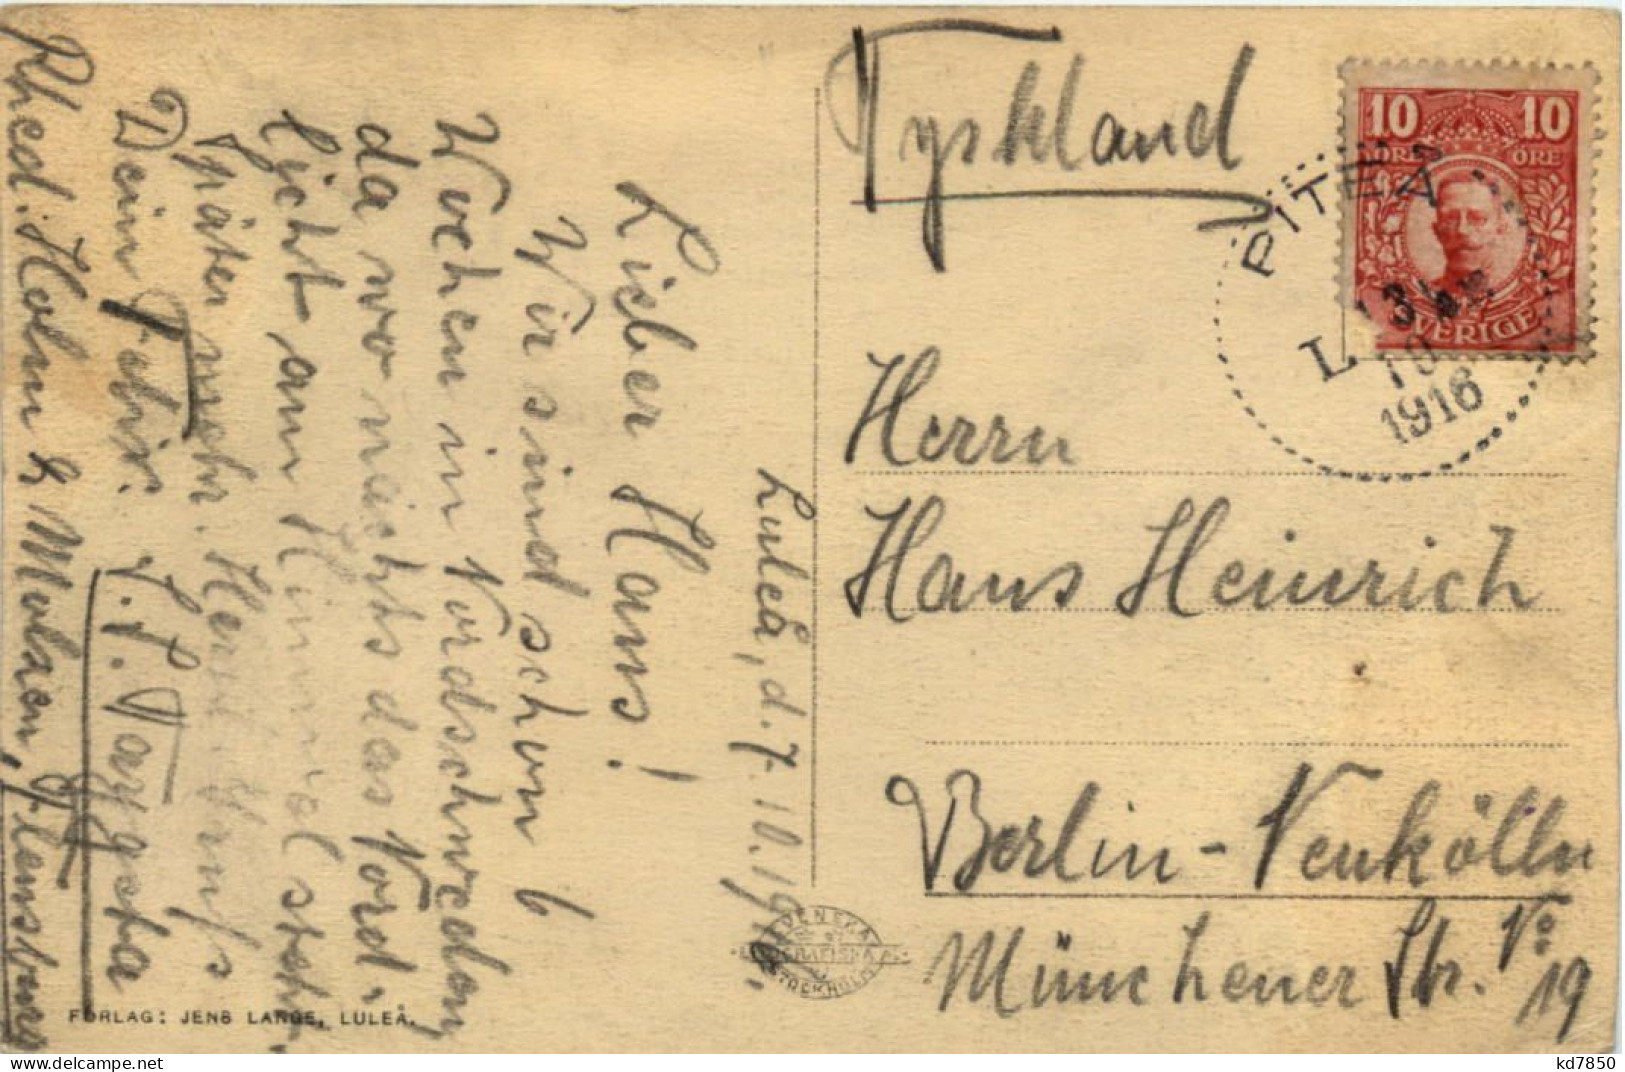 Tyskland
10 10
ÖRE ÖRE
SVERIGE
PITEÅ
10
1916
Herrn
Hans Heinrich
Berlin-Neukölln
Münchener Str. No 19
Luleå, d. 7. 10. 1916.
Lieber Hans!
Wir sind schon 6
Wochen in Nordschweden,
da wo nachts das Nord-
licht am Himmel steht.
Später mehr. Herzl. Gruß
Dein Felix.
Rhed. Holm & Molzen, Flensburg
SVENSKA
LITOGRAFISKA
STOCKHOLM
FÖRLAG: JENS LANGE, LULEÅ.
kd7850